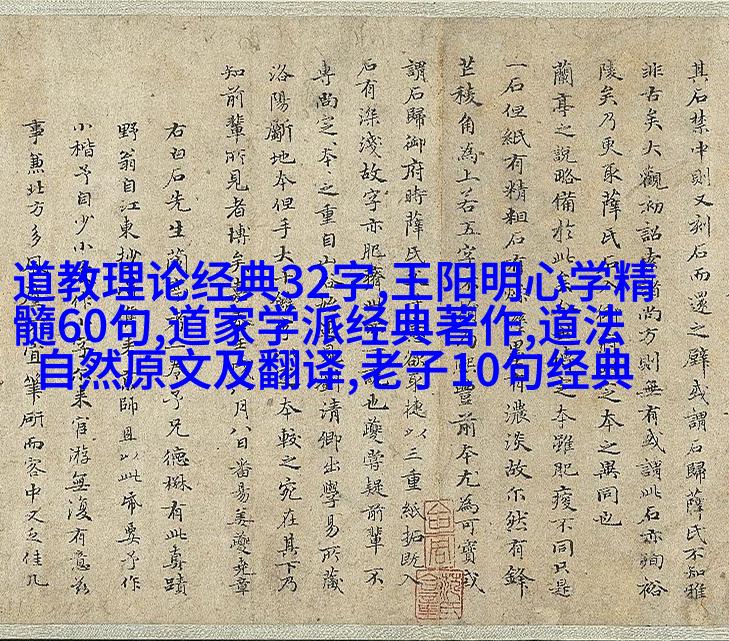 道教理论经典32字,王阳明心学精
髓60句,道家学派经典著作,道法
自然原文及翻译,老子10句经典
其石禁中則又刻石而還之壁或謂石歸薛氏不知雅
非古矣大觀初詔去尚方則無有或謂此石亦殉裕
陵矣乃更取薛氏之本之異同也
蘭亭之說略備於此之本雖肥瘦不同只是
一石但紙有精粗石有濃淡故尔然有鋒
芒稜角為上若五字豐前本尤為可寶或
謂石歸御府時薛氏捷以三重紙拓既入
石有深淺故字亦肥也夔嘗疑前輩不
專尚定本之重自清卿出學易所藏
洛陽斷地本但手大本較之宛在其下乃
知前輩所見者博矣月八日番昜姜夔堯章
右白石先生予兄德琳有此真蹟
野翁自江東抄師且以此帋要予作
小楷予自少小來官游無復有意茲
事兼北方多風宜筆研而客中又乏佳几